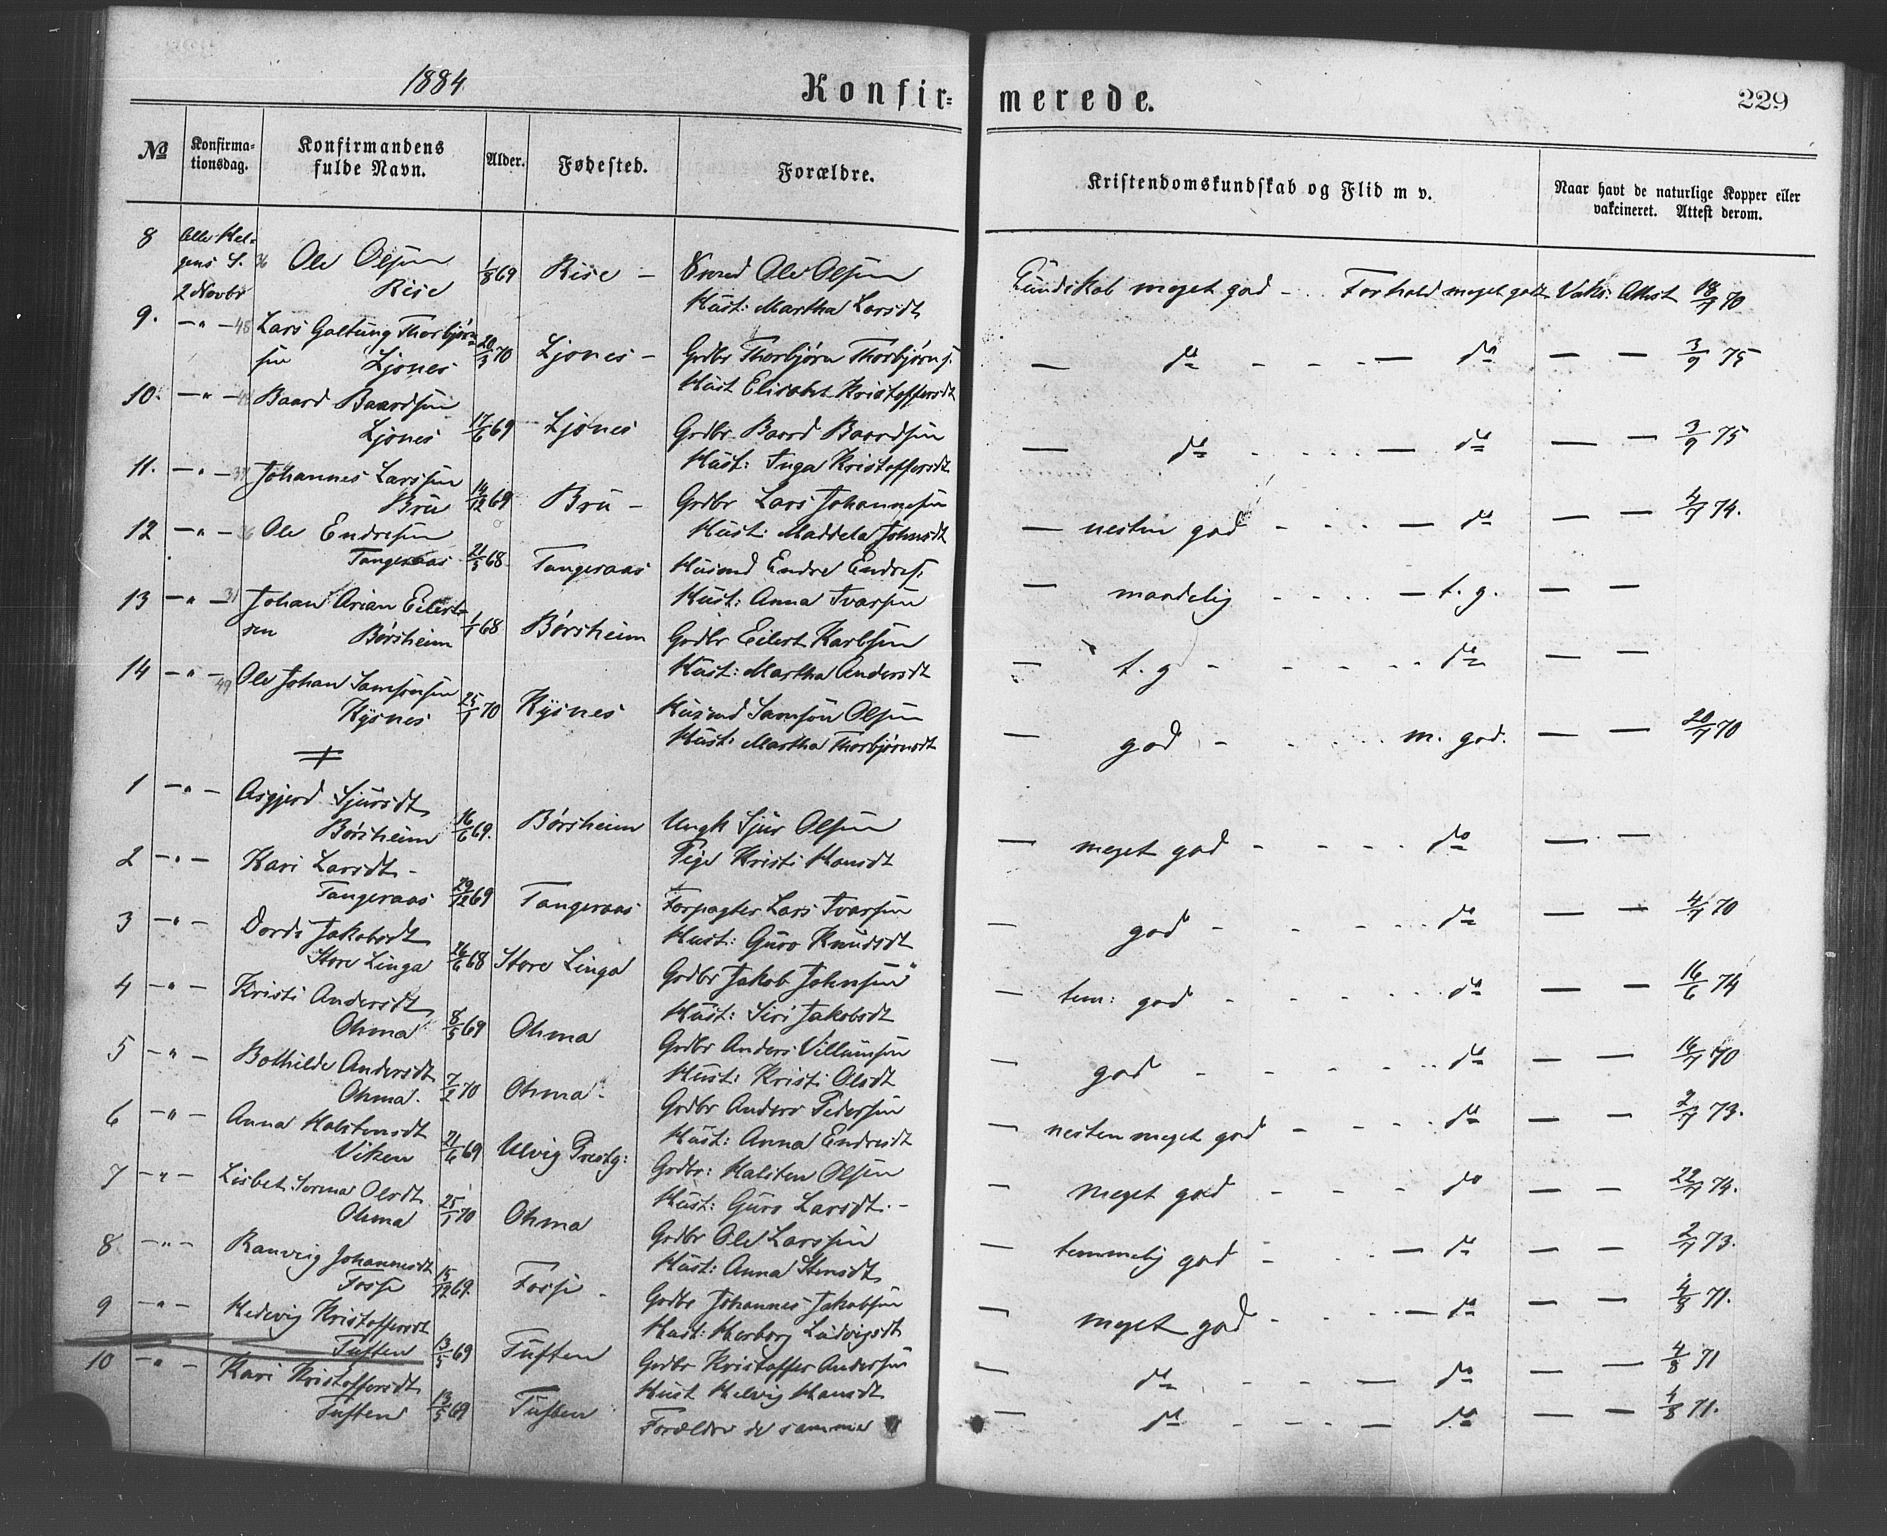 1884
Konfir=
merede.
229
No
Konfirma-
tionsdag.
Konfirmandens
fulde Navn.
Alder.
Fødested.
Forældre.
Kristendomskundskab og Flid m v.
Naar havt de naturlige Kopper eller
vakcineret. Attest derom.
8 Alle Hel-
gens S. 36 Ole Olsen 1/8 69 Rise - Ole Olsen Kundskab meget god - Forhold meget godt Vaks: Attest 18/7 70
2 Novbr Rise Hust: Martha Larsdt
9. — " — 48 Lars Galtung Thorbjørn-
sen Ljones 20/3 70 Ljones - Grdbr Thorbjørn Thorbjørns. — do - - - — do — — 3/9 75
Hust Elisabet Kristoffersdt
10. — " — Baard Baardsen
Ljones 17/6 69 Ljones Grdbr Baard Baardsen — do - - - — do — — 3/9 75
Hust: Inga Kristoffersdt
11. — " — 37 Johannes Larsen
Bru 14/12 69 Bru - Grdbr Lars Johannesen — nesten god - - - — do — — 4/7 74.
Hust: Maddela Johnsdt
12 — " — 36 Ole Endresen
Tangeraas 21/5 68 Tangeraas Husmd Endre Endres. — maadelig - - - — t. g. — —
Hust: Anna Ivarsen
13 — " — 31 Johan Arian Eilert-
sen Børsheim 1/1 68 Børsheim Grdbr Eilert Karlsen — t. g - - - - do — —
Hust: Martha Andersdt
14 — " — 49 Ole Johan Samsonsen
Kysnes 25/1 70 Kysnes Husmd Samson Olsen — god - - - m. god. — — 20/7 70
Hust: Martha Thorbjørnsdt
1 — " — Asgjerd Sjursdt
Børsheim 16/6 69. Børsheim Ungk Sjur Olsen — meget god - - - - do — —
Pige Kristi Hansdt
2 — " — Kari Larsdt -
Tangeraas 29/12 69 Tangeraas Forpagter Lars Ivarsen — god - - - - do — — 4/7 70
Hust: Guro Knudsdt
3 — " — Dorde Jakobsdt
Store Linga 26/6 68 Store Linga Grdbr Jakob Johnsen — tem: god - - - - do — — 16/6 74
Hust: Siri Jakobsdt
4 — " — Kristi Andersdt
Ohma 8/5 69 Ohma Grdbr Anders Villumsen — god - - - - do — — 16/7 70
Hust: Kristi Olsdt
5 — " — Bothilde Andersdt
Ohma. 7/2 70 Ohma - Grdbr Anders Pedersen — nesten meget god - - - do — — 2/7 73.
Hust: Anna Endresdt
6 — " — Anna Halstensdt
Viken 21/6 69 Ulvig Prestg: Grdbr: Halsten Olsen — meget god - - - do — — 22/7 74.
Hust: Guro Larsdt. -
7 — " — Lisbet Serina Olsdt
Ohma 25/1 70 Ohma Grdbr Ole Larssen — temmelig god - - - — do — — 2/7 73.
Hust: Anna Stensdt
8 — " — Ranveig Johannesdt
Fosse 15/12 69. Fosse - Grdbr Johannes Jakobsen — meget god - - - — do — — 4/8 71.
Hust: Herborg Ludvigsdt
9 — " — Hedevig Kristoffersdt
Tuften 13/5 69 Tuften Grdbr Kristoffer Andersen — do - - - — do — — 4/8 71
Hust Helvig Hansdt
10 — " — Kari Kristoffersdt
Tuften 13/5 69 Tuften Forældre de samme — do - - - — do — — 4/8 71.